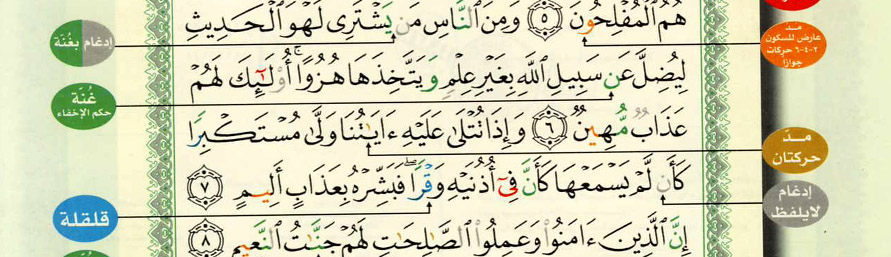 هُمُ ٱلْمُفْلِحُونَ ٥ وَمِنَ ٱلنَّاسِ مَن يَشْتَرِى لَهْوَ ٱلْحَدِيثِ
لِيُضِلَّ عَن سَبِيلِ ٱللَّهِ بِغَيْرِ عِلْمٍ وَيَتَّخِذَهَا هُزُوًا ۚ أُو۟لَـٰٓئِكَ لَهُمْ
عَذَابٌ مُّهِينٌ ٦ وَإِذَا تُتْلَىٰ عَلَيْهِ ءَايَـٰتُنَا وَلَّىٰ مُسْتَكْبِرًا
كَأَن لَّمْ يَسْمَعْهَا كَأَنَّ فِىٓ أُذُنَيْهِ وَقْرًا ۖ فَبَشِّرْهُ بِعَذَابٍ أَلِيمٍ ٧
إِنَّ ٱلَّذِينَ ءَامَنُوا۟ وَعَمِلُوا۟ ٱلصَّـٰلِحَـٰتِ لَهُمْ جَنَّـٰتُ ٱلنَّعِيمِ ٨
مدّ
عارض للسكون
٢-٤-٦ حركات
جوازًا
مدّ
حركتان
إدغام
لا يلفظ
إدغام بغُنّة
غُنّة
حكم الإخفاء
قلقلة